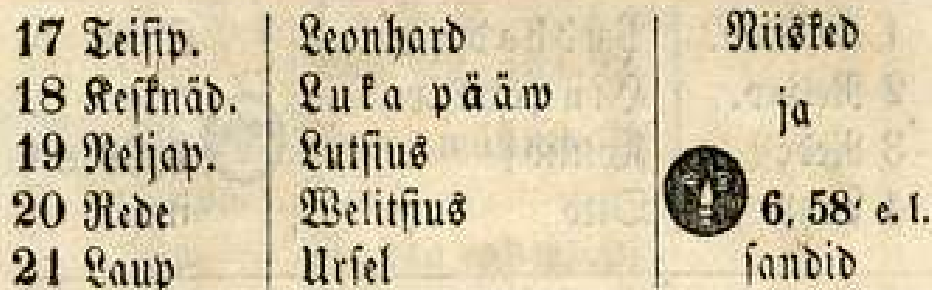 17 Teisip. Leonhard Niisked
18 Kesknäd. Luka pääw ja
19 Neljap. Lutsius
20 Rede Welitsius 6, 58' e. l.
21 Laup Ursel sandid